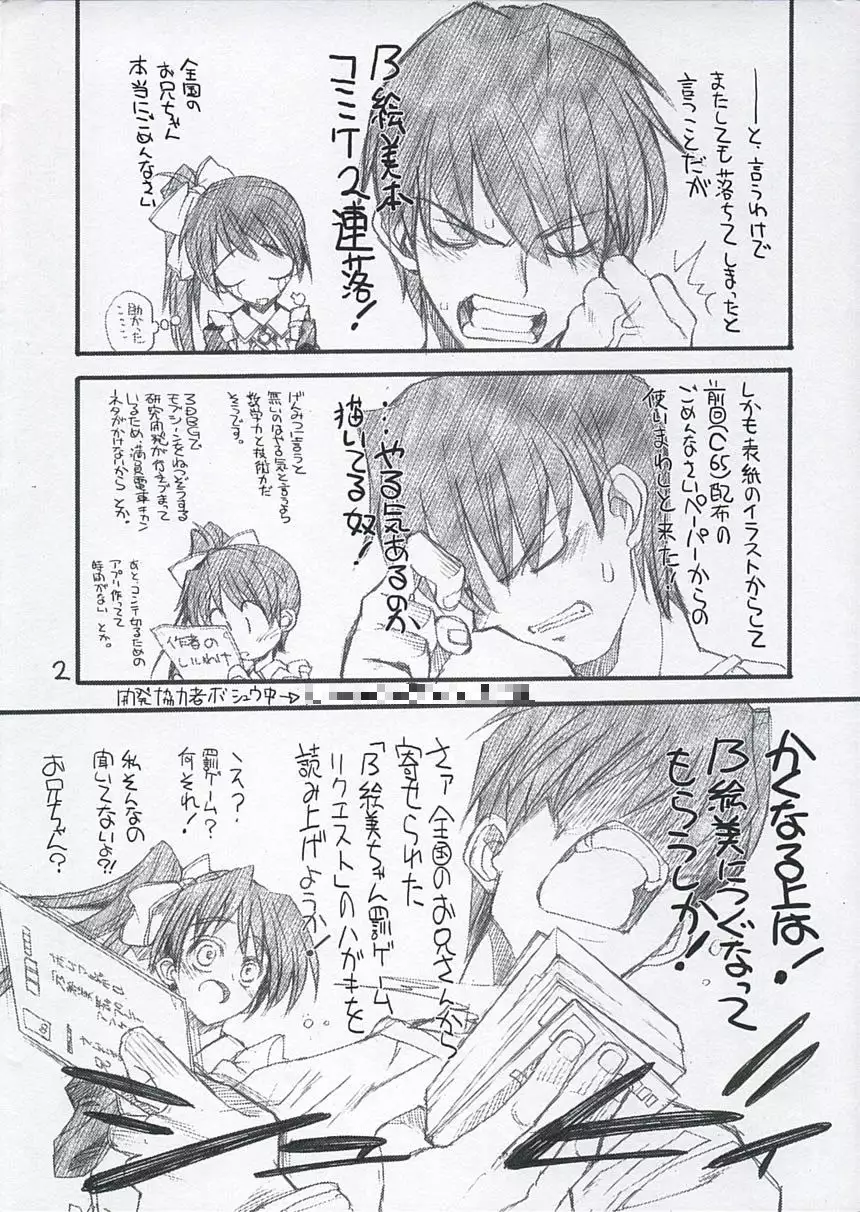 ――と、言うわけで
またしても落ちてしまったと
言うことだが
B絵美本
コミケ2連落!
全国の
お兄ちゃん
本当にごめんなさい
助かった
しかも表紙のイラストからして
前回(C65)配布の
ごめんなさいペーパーからの
使いまわしと来た!
…やる気あるのか
描いてる奴!
げんみつに言うと
無いのはやる気と言うより
数学力と技術力だ
そうです。
モブシーンをねつぞうする
研究開発が行きづまって
いるため満員電車キカン
ネタがかけないから とか。
あと、コンテ切るための
アプリ作ってて
時間がない とか。
作者の
いいわけ
2
開発協力者ボシュウ中→
かくなる上は!
B絵美につぐなって
もらうしか!
さァ 全国のお兄さんから
寄せられた
「B絵美ちゃん罰ゲーム
リクエスト」のハガキを
読み上げようか!
へス?
罰ゲーム?
何それ!
私そんなの
聞いてないよ?!
お兄ちゃん?